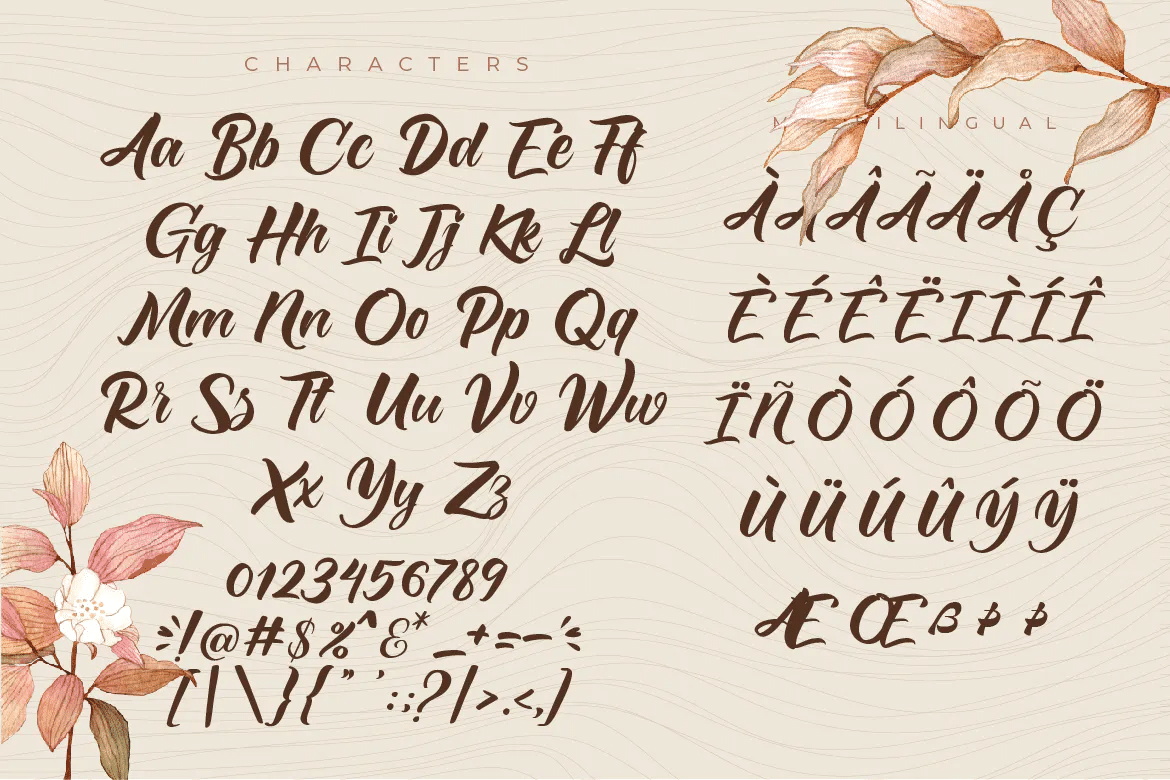 CHARACTERS
Aa Bb Cc Dd Ee Ff
Gg Hh Ii Jj Kk Ll
Mm Nn Oo Pp Qq
Rr Ss Tt Uu Vv Ww
Xx Yy Zz
0123456789
!@#$%^&*_+=-
[|\}{"':;?/>.<,]
MULTILINGUAL
ÀÁÂÃÄÅÇ
ÈÉÊËIÌÍÎ
ÏÑÒÓÔÕÖ
ÙÜÚÛÝŸ
ÆŒßÞÞ